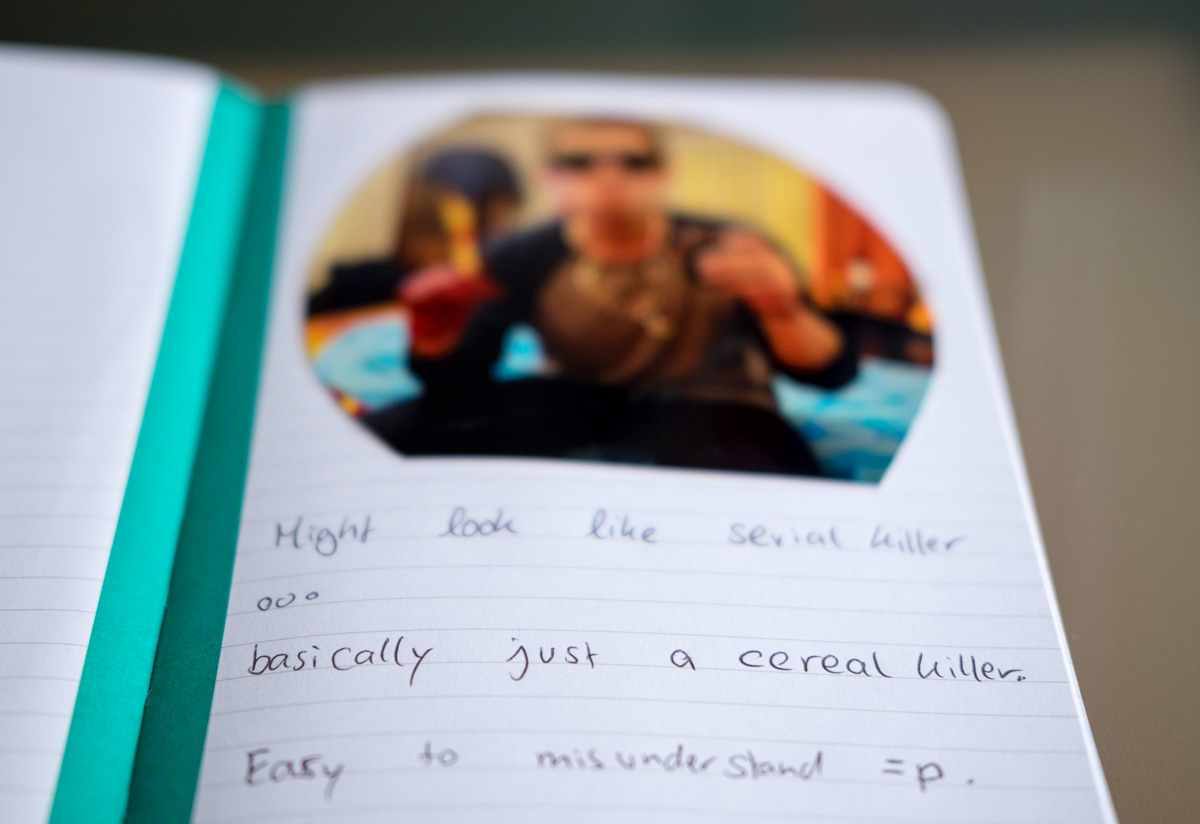 Might look like serial killer
ooo
basically just a cereal killer.
Easy to misunderstand =p.